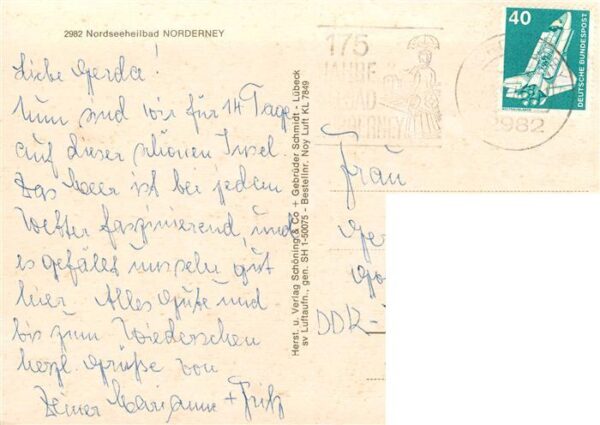 2982 Nordseeheilbad NORDERNEY
Liebe Gerda!
Nun sind wir für 14 Tage
auf dieser schönen Insel.
Das Meer ist bei jedem
Wetter faszinierend, und
es gefällt uns sehr gut
hier. Alles Gute und
bis zum Wiedersehen
herzl. Grüße von
Deiner Marianne + Fritz
Herst. u. Verlag Schöning & Co + Gebrüder Schmidt - Lübeck
sv Luftaufn., gen. SH 1-50075 - Bestellnr. Noy Luft KL 7849
175
JAHRE
BAD
NORDERNEY
2982
40
DEUTSCHE BUNDESPOST
Frau
Ger
DDR-